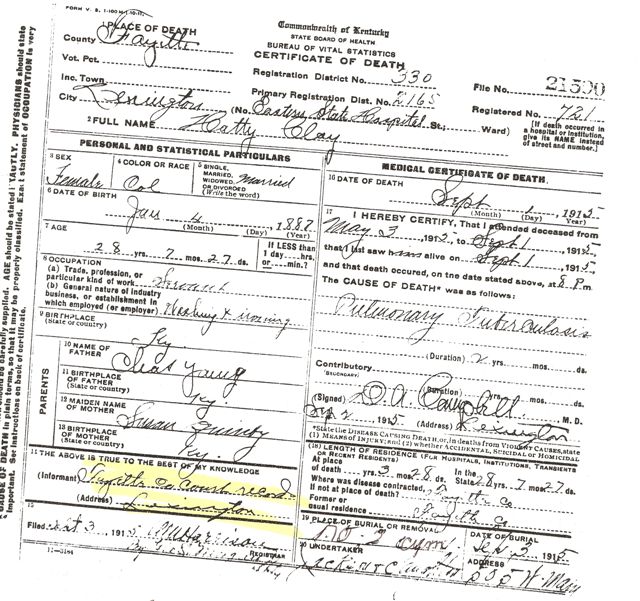 FORM V. S. 1-100M 1-10-17.
PLACE OF DEATH
County Fayette
Vot. Pct.
Inc. Town
City Lexington
Commonwealth of Kentucky
STATE BOARD OF HEALTH
BUREAU OF VITAL STATISTICS
CERTIFICATE OF DEATH
Registration District No. 330
File No. 21500
Primary Registration Dist. No. 2165
Registered No. 721
(No. Eastern State Hospital St.; Ward)
[If death occurred in a hospital or institution, give its NAME instead of street and number.]
2 FULL NAME Hatty Clay
PERSONAL AND STATISTICAL PARTICULARS
3 SEX Female
4 COLOR OR RACE Col
5 SINGLE, MARRIED, WIDOWED, OR DIVORCED (Write the word) Married
6 DATE OF BIRTH
Jan 4 1887
(Month) (Day) (Year)
7 AGE
28 yrs. 7 mos. 27 ds.
If LESS than 1 day ... hrs. or ... min.?
8 OCCUPATION
(a) Trade, profession, or particular kind of work Servant
(b) General nature of industry business, or establishment in which employed (or employer) Washing & ironing
9 BIRTHPLACE (State or country) Ky
PARENTS
10 NAME OF FATHER Chas Young
11 BIRTHPLACE OF FATHER (State or country) Ky
12 MAIDEN NAME OF MOTHER Susan
13 BIRTHPLACE OF MOTHER (State or country) Ky.
14 THE ABOVE IS TRUE TO THE BEST OF MY KNOWLEDGE
(Informant) Fayette Co Court records
(Address) Lexington
15
Filed 3 1915
REGISTRAR
11-3184
MEDICAL CERTIFICATE OF DEATH.
16 DATE OF DEATH
Sept 1, 1915
(Month) (Day) (Year)
17 I HEREBY CERTIFY, That I attended deceased from
May 3 1915 to Sept 1 1915
that I last saw alive on Sept 1, 1915
and that death occured, on the date stated above, at 8 P m.
The CAUSE OF DEATH* was as follows:
Pulmonary Tuberculosis
(Duration) 2 yrs. mos. ds.
Contributory
(SECONDARY)
(Duration) yrs. mos. ds.
(Signed) O. A. M. D.
Sep 2 1915 (Address) Lexington
*State the DISEASE CAUSING DEATH, or, in deaths from VIOLENT CAUSES, state (1) MEANS OF INJURY; and (2) whether ACCIDENTAL, SUICIDAL OR HOMICIDAL
(18) LENGTH OF RESIDENCE (FOR HOSPITALS, INSTITUTIONS, TRANSIENTS OR RECENT RESIDENTS)
At place of death yrs. 3 mos. 28 ds. In the State 28 yrs. 7 mos. 27 ds.
Where was disease contracted, if not at place of death? Fayette Co
Former or usual residence Fayette Co
19 PLACE OF BURIAL OR REMOVAL
DATE OF BURIAL
Sep 3 1915
20 UNDERTAKER
ADDRESS
W. Main